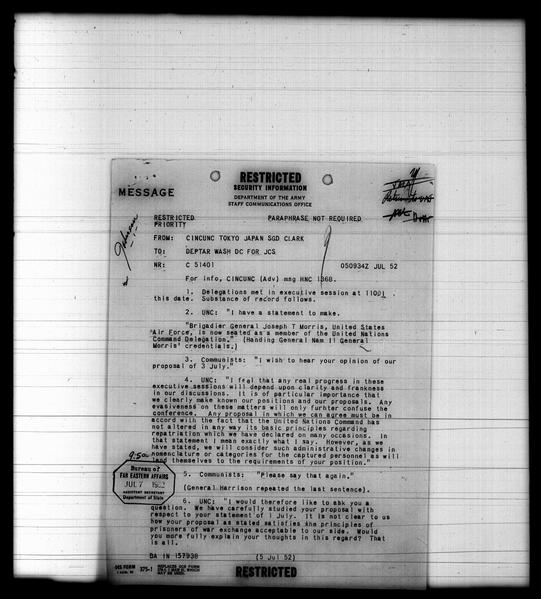 RESTRICTED
SECURITY INFORMATION
MESSAGE
DEPARTMENT OF THE ARMY
STAFF COMMUNICATIONS OFFICE
RESTRICTED PARAPHRASE NOT REQUIRED
PRIORITY
FROM: CINCUNC TOKYO JAPAN SGD CLARK
TO: DEPTAR WASH DC FOR JCS
NR: C 51401 050934Z JUL 52
For info, CINCUNC (Adv) msg HNC 1368.
1. Delegations met in executive session at 1100I
this date. Substance of record follows.
2. UNC: "I have a statement to make.
"Brigadier General Joseph T Morris, United States
Air Force, is now seated as a member of the United Nations
Command Delegation." (Handing General Nam Il General
Morris' credentials.)
3. Communists: "I wish to hear your opinion of our
proposal of 3 July."
4. UNC: "I feel that any real progress in these
executive sessions will depend upon clarity and frankness
in our discussions. It is of particular importance that
we clearly make known our positions and our proposals. Any
evasiveness on these matters will only furhter confuse the
conference. Any proposal in which we can agree must be in
accord with the fact that the United Nations Command has
not altered in any way its basic principles regarding
repatriation which we have declared on many occasions. In
that statement I mean exactly what I say. However, as we
have stated, we will consider such administrative changes in
nomenclature or categories for the captured personnel as will
lend themselves to the requirements of your position."
5. Communists: "Please say that again."
(General Harrison repeated the last sentence).
6. UNC: "I would therefore like to ask you a
question. We have carefully studied your proposal with
respect to your statement of 1 July. It is not clear to us
how your proposal as stated satisfies the principles of
prisoners of war exchange acceptable to our side. Would
you more fully explain your thoughts in this regard? That
is all.
Bureau of
FAR EASTERN AFFAIRS
JUL 7 1952
ASSISTANT SECRETARY
Department of State
DA IN 157938 (5 Jul 52)
OCS FORM 375-1 REPLACES OCS FORM
RESTRICTED